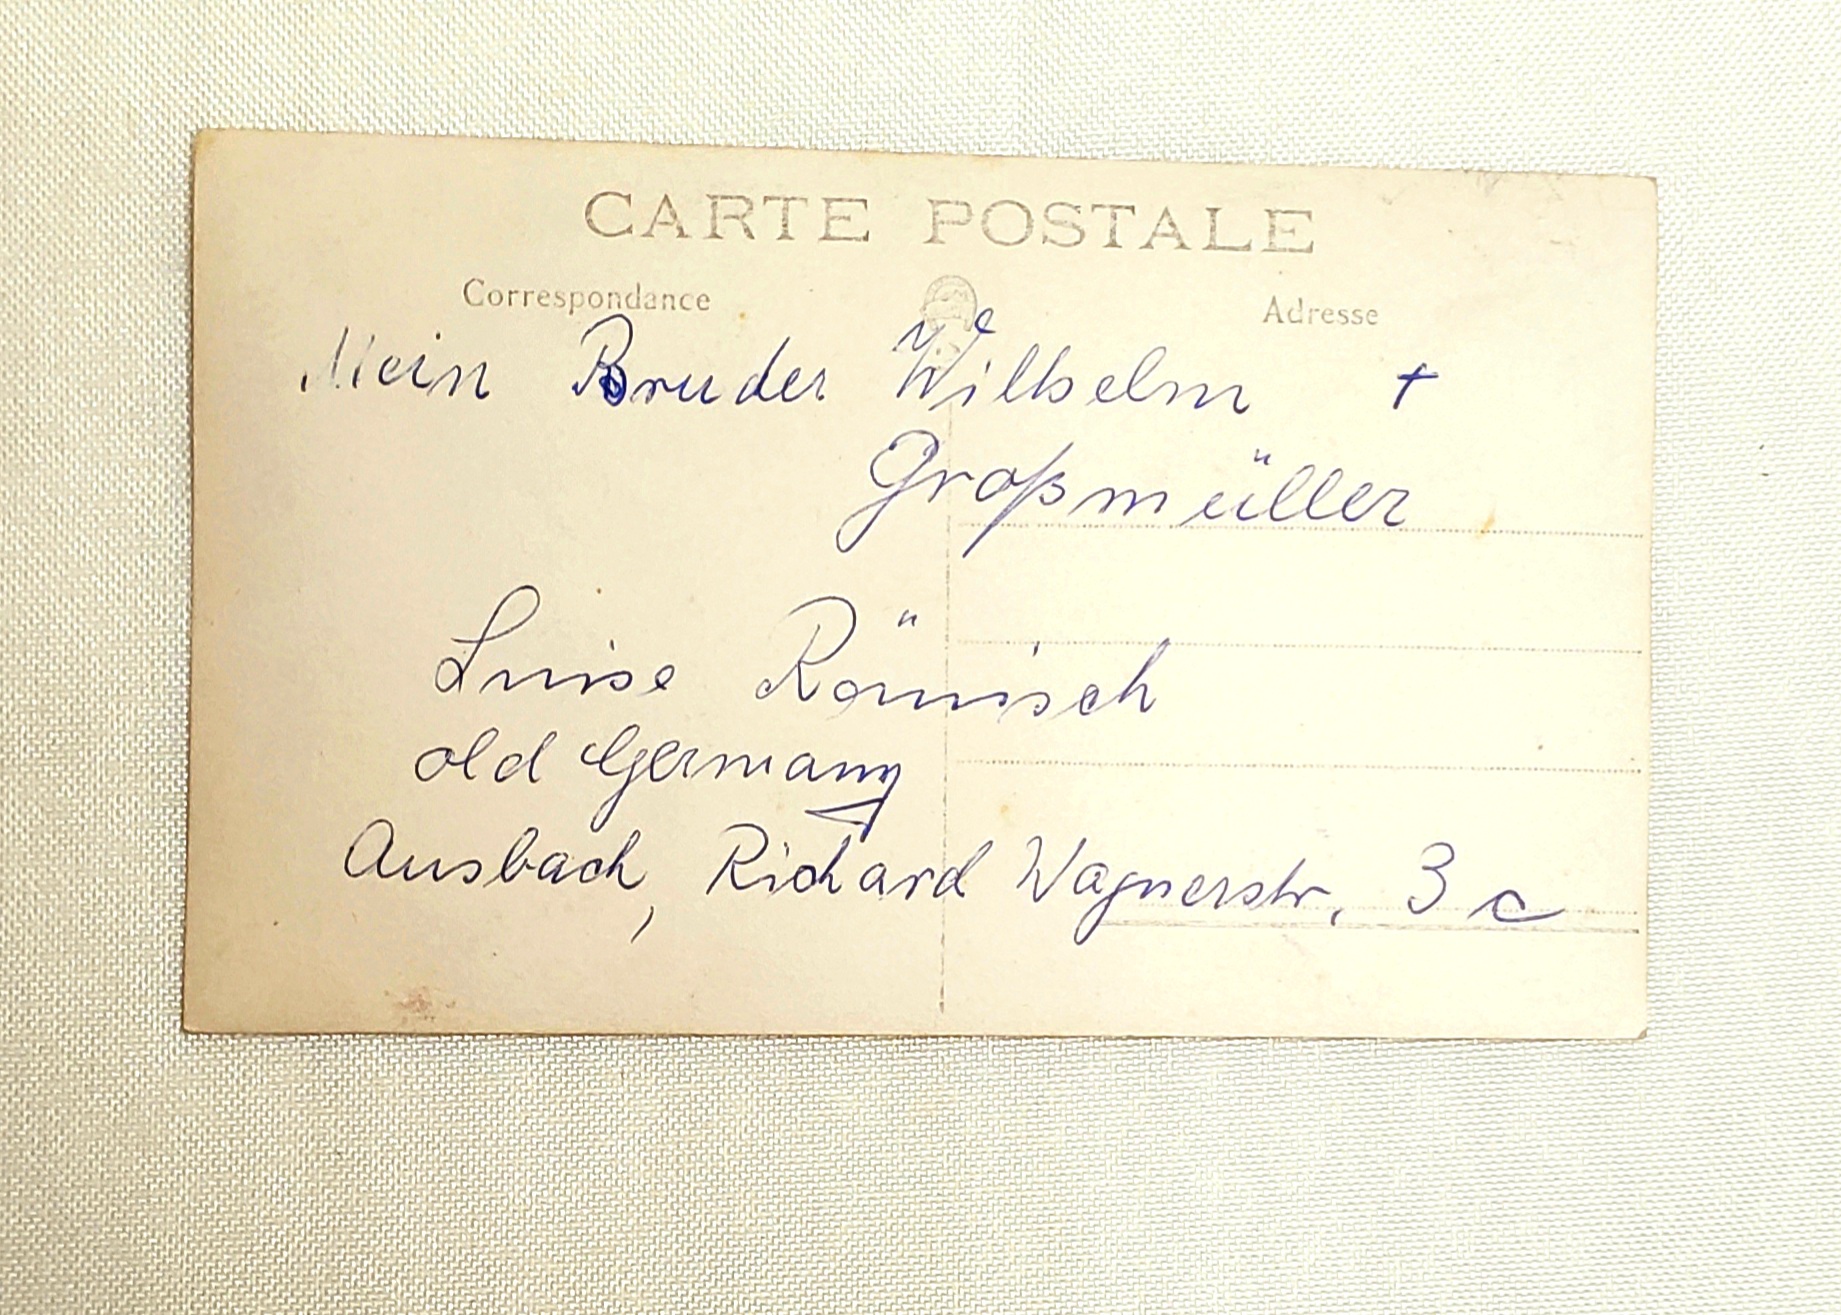 CARTE POSTALE
Correspondance Adresse
Mein Bruder Wilhelm +
Großmüller
Luise Römisch
old Germany
Ansbach, Richard Wagnerstr. 3 c